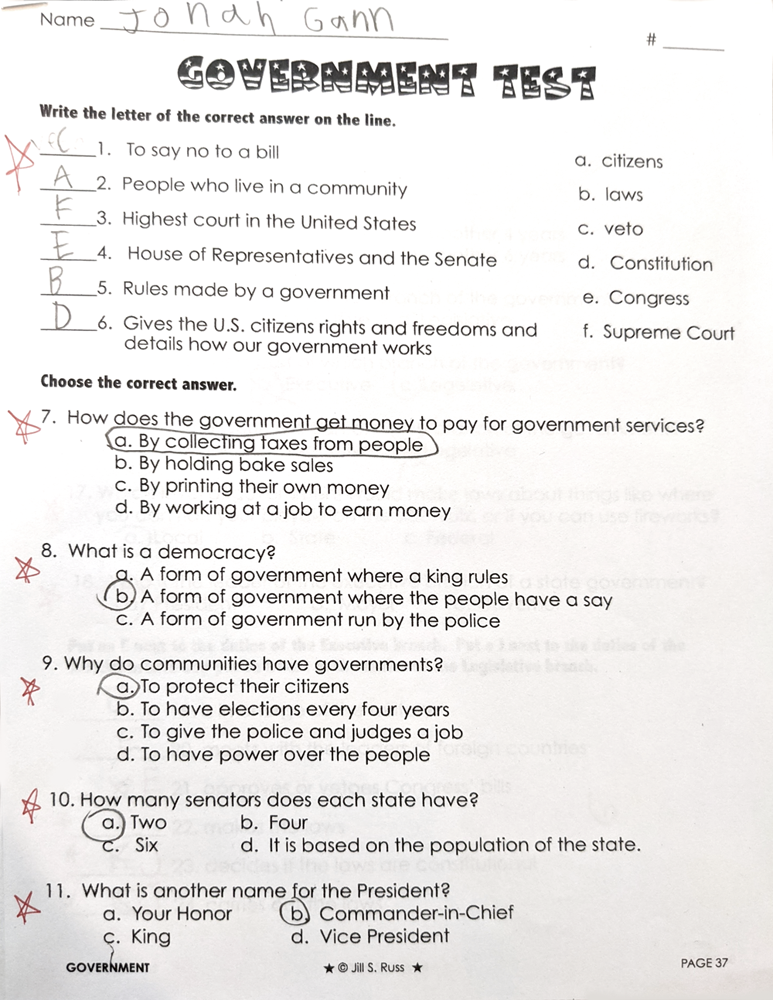 Name Jonah Gann
#
GOVERNMENT TEST
Write the letter of the correct answer on the line.
C 1. To say no to a bill
A 2. People who live in a community
F 3. Highest court in the United States
E 4. House of Representatives and the Senate
B 5. Rules made by a government
D 6. Gives the U.S. citizens rights and freedoms and
details how our government works
a. citizens
b. laws
c. veto
d. Constitution
e. Congress
f. Supreme Court
Choose the correct answer.
7. How does the government get money to pay for government services?
a. By collecting taxes from people
b. By holding bake sales
c. By printing their own money
d. By working at a job to earn money
8. What is a democracy?
a. A form of government where a king rules
b. A form of government where the people have a say
c. A form of government run by the police
9. Why do communities have governments?
a. To protect their citizens
b. To have elections every four years
c. To give the police and judges a job
d. To have power over the people
10. How many senators does each state have?
a. Two b. Four
c. Six d. It is based on the population of the state.
11. What is another name for the President?
a. Your Honor b. Commander-in-Chief
c. King d. Vice President
GOVERNMENT ★ © Jill S. Russ ★ PAGE 37